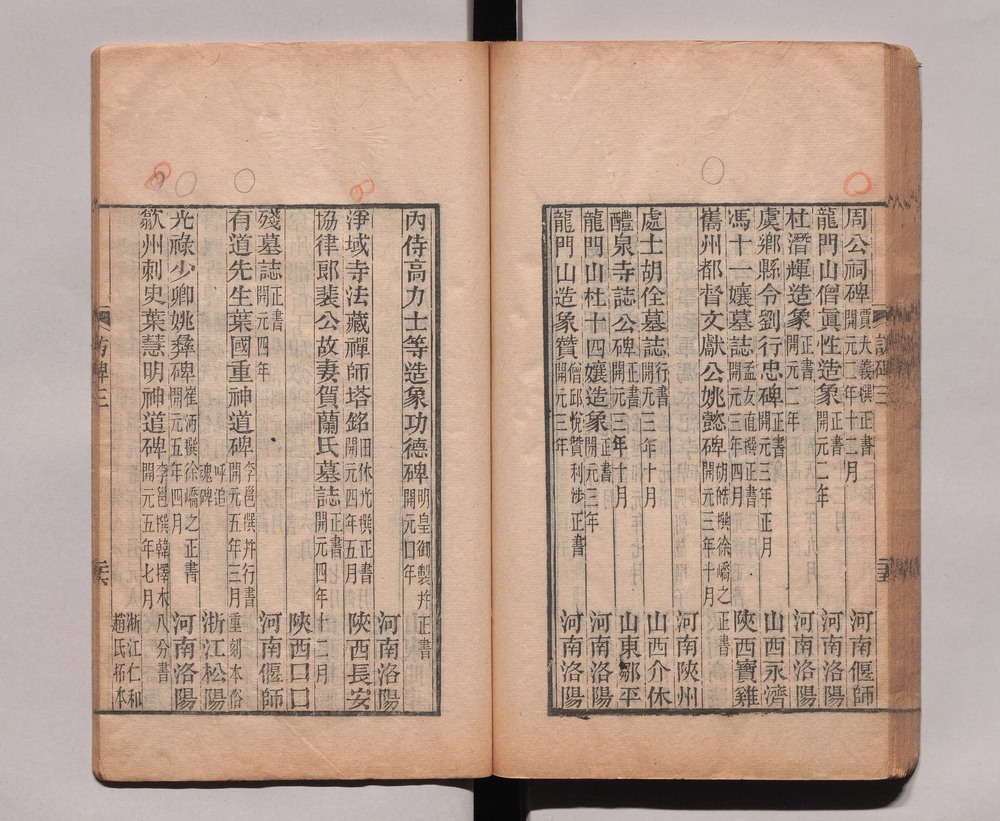 周公祠碑 賈大義撰正書 開元二年十二月 河南偃師
龍門山僧眞性造象 正書 開元二年 河南洛陽
杜潛輝造象 正書 開元二年 河南洛陽
虞鄉縣令劉行忠碑 正書 開元三年正月 山西永濟
馮十一孃墓誌 孟友直撰正書 開元三年四月 陝西寶雞
巂州都督文獻公姚懿碑 胡皓撰徐嶠之正書 開元三年十月
河南陝州
處士胡佺墓誌 行書 開元三年十月 山西介休
醴泉寺誌公碑 正書 開元三年十月 山東鄒平
龍門山杜十四孃造象 正書 開元三年 河南洛陽
龍門山造象贊 僧邱悅贊利涉正書 開元三年 河南洛陽
訪碑三
內侍高力士等造象功德碑 明皇御製幷正書 開元口年
河南洛陽
淨域寺法藏禪師塔銘 田休光撰正書 開元四年五月 陝西長安
協律郎裴公故妻賀蘭氏墓誌 正書 開元四年十二月
陝西口口
殘墓誌 正書 開元四年 河南偃師
有道先生葉國重神道碑 李邕撰幷行書 開元五年三月 重刻本俗
呼追魂碑 浙江松陽
光祿少卿姚彝碑 崔沔撰徐嶠之正書 開元五年四月 河南洛陽
歙州刺史葉慧明神道碑 李邕撰韓擇木八分書 開元五年七月
浙江仁和趙氏拓本
訪碑三